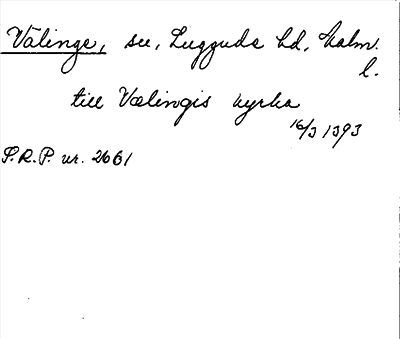 Välinge, sn, Luggude hd, Malm.
l.
till Vælingis kyrka
16/3 1393
S.R.P. nr. 2661